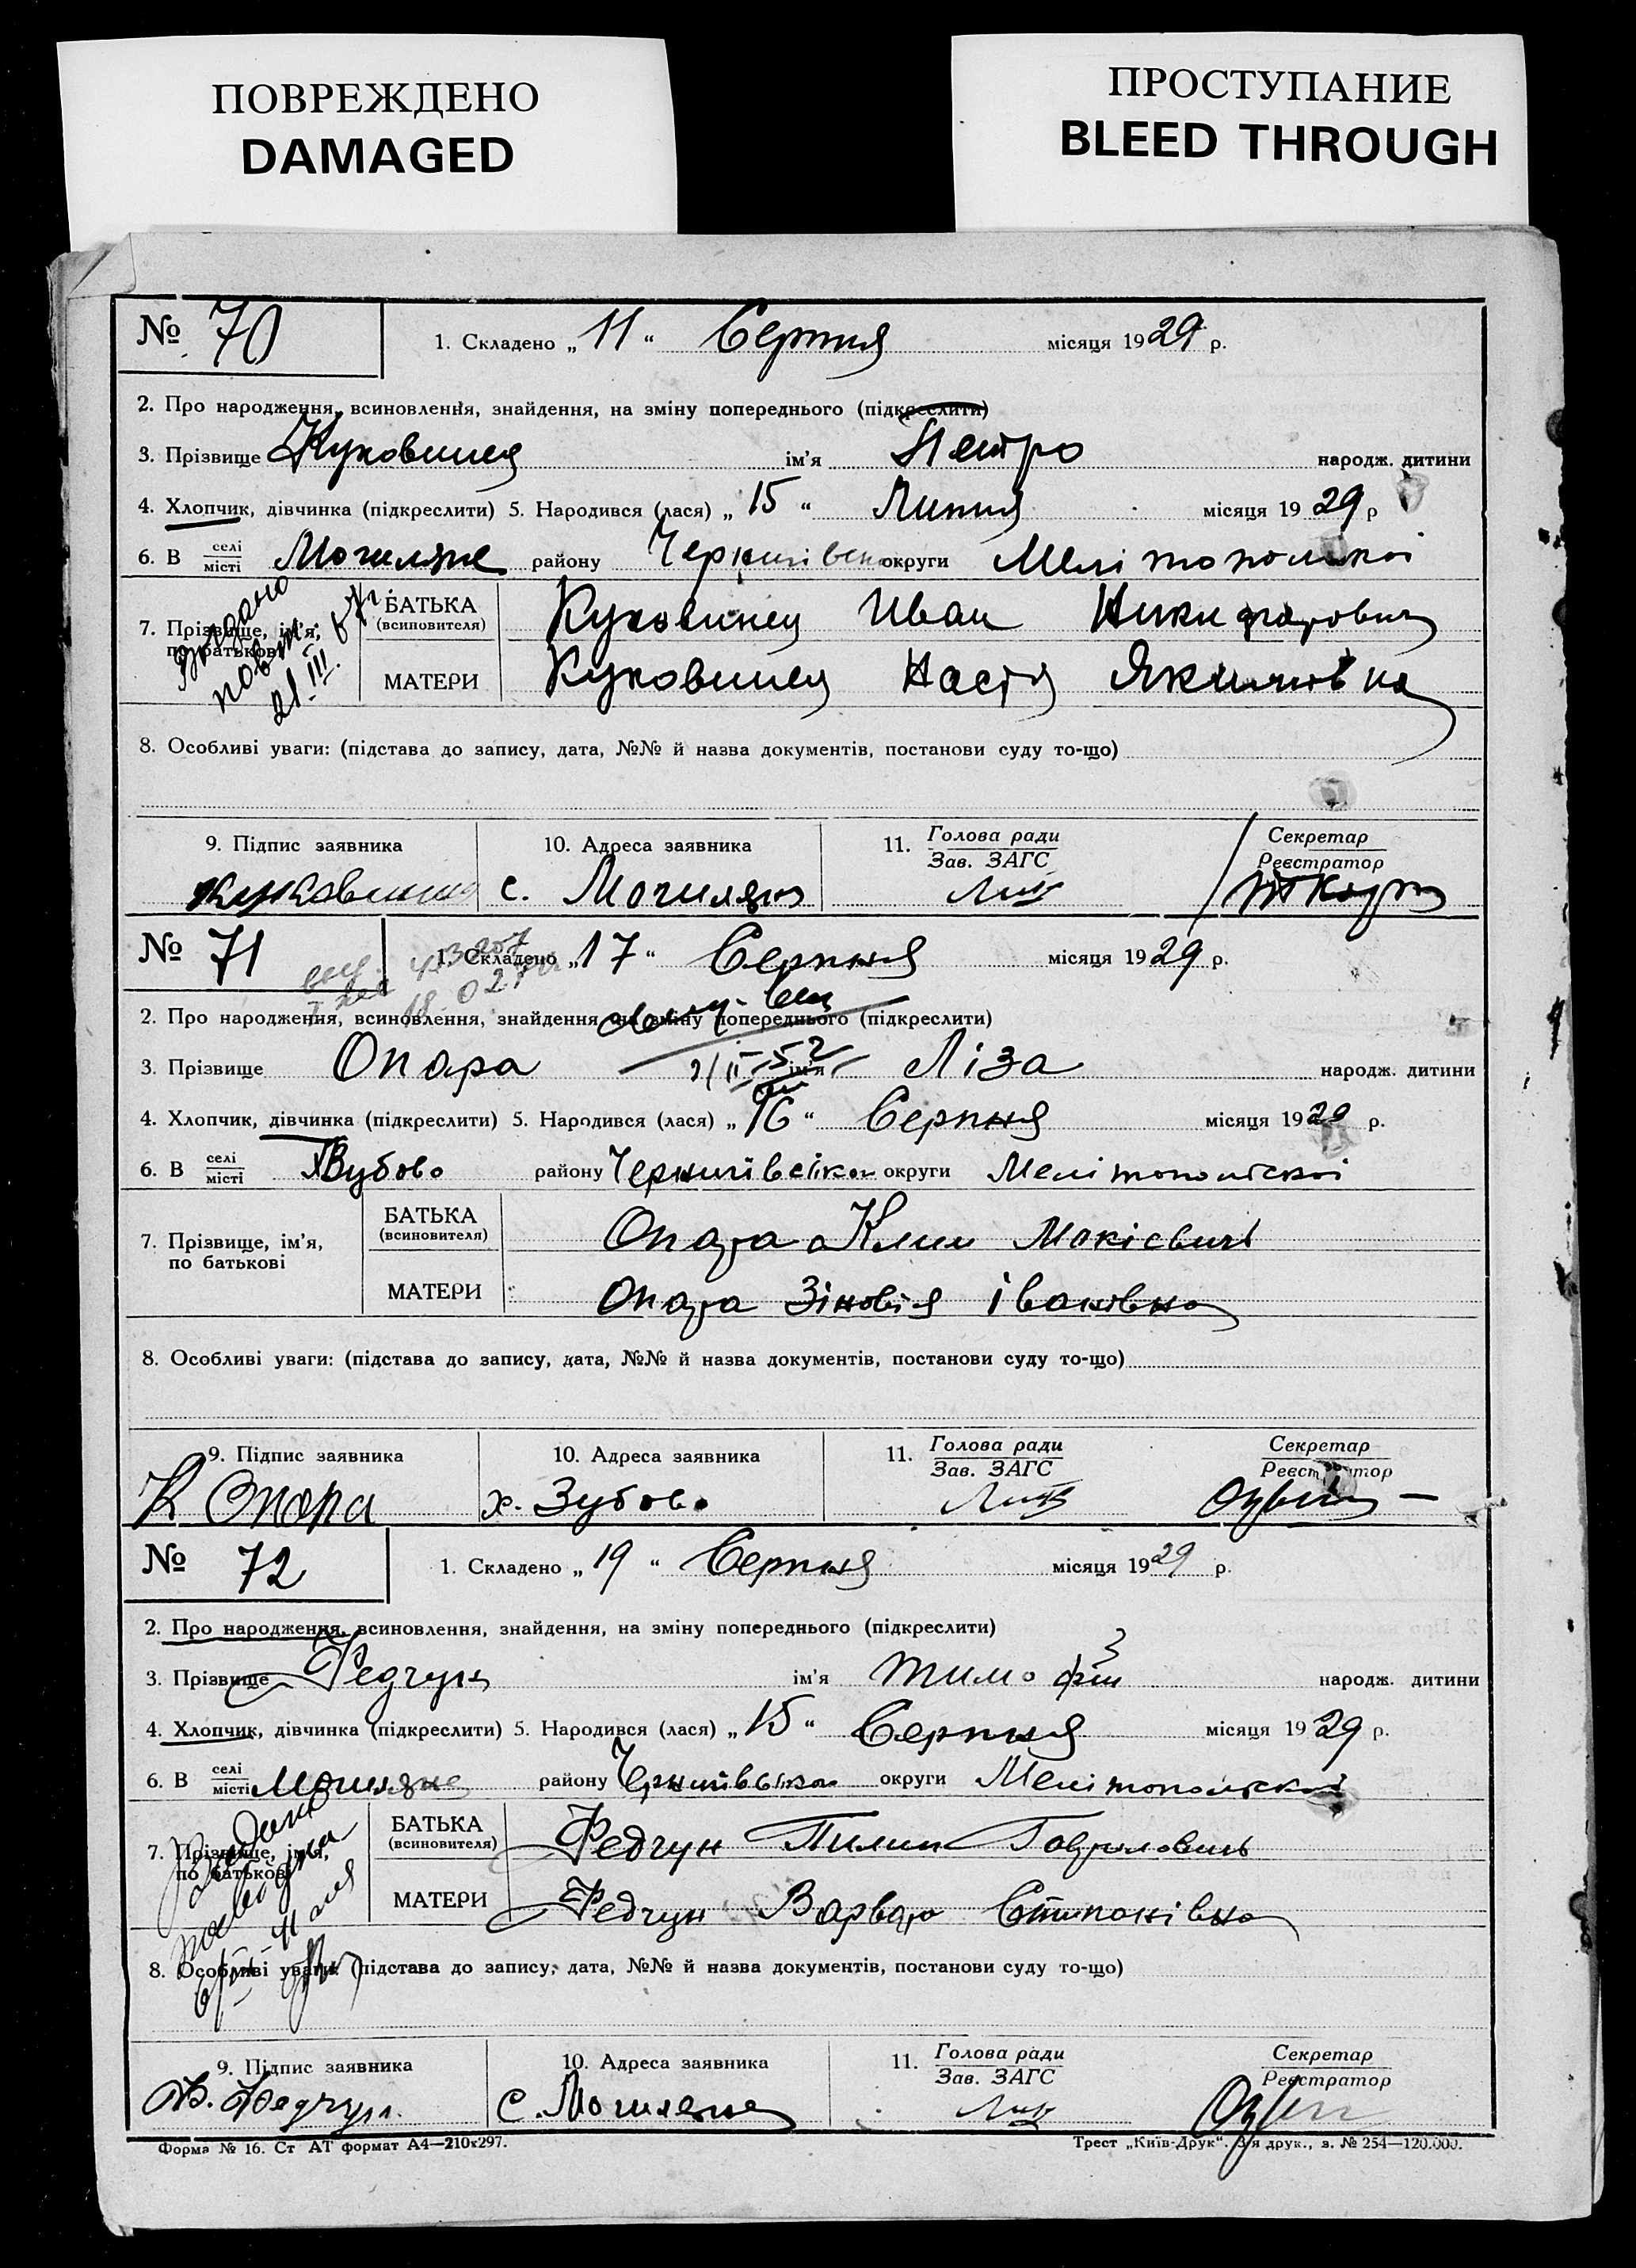 ПОВРЕЖДЕНО
DAMAGED
ПРОСТУПАНИЕ
BLEED THROUGH
№ 70 1. Складено „11“ Серпня місяця 1929 р.
2. Про народження, всиновлення, знайдення, на зміну попереднього (підкреслити)
3. Прізвище Куковинец ім'я Петро народж. дитини
4. Хлопчик, дівчинка (підкреслити) 5. Народився (лася) „15“ Липня місяця 1929 р
6. В селі місті Могиляне району Чернигівськ округи Мелітопольскоі
7. Прізвище, ім'я, по батькові
Видано повт. 21.III.
БАТЬКА (всиновителя) Куковинец Иван Никифорович
МАТЕРИ Куковинец Настя Якимівна
8. Особливі уваги: (підстава до запису, дата, №№ й назва документів, постанови суду то-що)
9. Підпис заявника 10. Адреса заявника 11. Голова ради Зав. ЗАГС Секретар Реєстратор
Куковинец с. Могиляне
№ 71 1. Складено „17“ Серпня місяця 1929 р.
2. Про народження, всиновлення, знайдення, на зміну попереднього (підкреслити)
3. Прізвище Опара ім'я Ліза народж. дитини
21 II-52
4. Хлопчик, дівчинка (підкреслити) 5. Народився (лася) „16“ Серпня місяця 1929 р.
6. В селі місті Зубово району Чернигівської округи Мелітопольскоі
7. Прізвище, ім'я, по батькові
БАТЬКА (всиновителя) Опара Клим Мокієвич
МАТЕРИ Опара Зіновія Іванівна
8. Особливі уваги: (підстава до запису, дата, №№ й назва документів, постанови суду то-що)
9. Підпис заявника 10. Адреса заявника 11. Голова ради Зав. ЗАГС Секретар Реєстратор
К Опара х. Зубово
№ 72 1. Складено „19“ Серпня місяця 1929 р.
2. Про народження, всиновлення, знайдення, на зміну попереднього (підкреслити)
3. Прізвище Федчун ім'я Тимофій народж. дитини
4. Хлопчик, дівчинка (підкреслити) 5. Народився (лася) „15“ Серпня місяця 1929 р.
6. В селі місті Могиляне району Чернигівськои округи Мелітопольскоі
7. Прізвище, ім'я, по батькові
БАТЬКА (всиновителя) Федчун Пилип Гаврилович
МАТЕРИ Федчун Варвара Степанівна
8. Особливі уваги: (підстава до запису, дата, №№ й назва документів, постанови суду то-що)
9. Підпис заявника 10. Адреса заявника 11. Голова ради Зав. ЗАГС Секретар Реєстратор
Федчун. с. Могиляне
Форма № 16. Ст АТ формат А4—210х297. Трест „Київ-Друк“. 3-я друк., з. № 254—120.000.